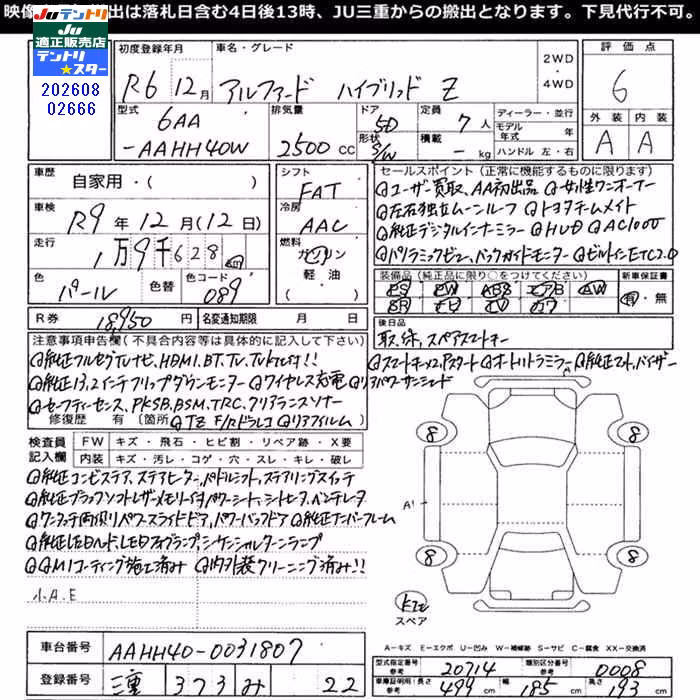 映像 出は落札日含む4日後13時、JU三重からの搬出となります。下見代行不可。
Ju テントリ
JU適正販売店
テントリ★スター
202608
02666
初度登録年月 車名・グレード 2WD・4WD 評価点
R6 12月 アルファード ハイブリッド Z 6
型式 排気量 ドア形状 定員 ディーラー・並行 外装 内装
6AA 5D 7人 モデル年式 年 A A
-AAHH40W 2500cc S/W 積載 - kg ハンドル 左・右
車歴 自家用・( ) シフト FAT セールスポイント(正常に機能するものに限ります)
◎ユーザー買取、AA初出品 ◎女性ワンオーナー
車検 R9年12月(12日) 冷房 AAC ◎左右独立ムーンルーフ ◎トヨタチームメイト
◎純正デジタルインナーミラー ◎HUD ◎AC100V
走行 1万9千628 km 燃料 ガソリン・軽油 ◎パノラミックビュー、バックガイドモニター ◎ビルトインETC2.0
色 パール 色替 色コード 089 装備品(純正品に限り○をつけてください) 新車保証書
PS PW ABS エアB AW 有・無
SR ナビ TV カワ
R券 18,950円 名変通知期限 月 日 後日品
取、保、スペアスマートキー
注意事項申告欄(不具合内容等は具体的に記入して下さい)
◎純正フルセグTVナビ、HDMI、BT、TV、TVkit付!! ◎スマートキーx2、Pスタート ◎オートリトラミラー ◎純正マット、バイザー
◎純正13.2インチフリップダウンモニター ◎ワイヤレス充電 ◎リアパワーサンシェード
◎セーフティーセンス、PKSB、BSM、TRC、クリアランスソナー
修復歴 有(箇所 ◎TZ F/Rドラレコ ◎リアフィルム)
検査員記入欄 FW キズ・飛石・ヒビ割・リペア跡・X要
内装 キズ・汚レ・コゲ・穴・スレ・キレ・破レ
◎純正コンビステア、ステアヒーター、パドルシフト、ステアリングスイッチ
◎純正ブラックソフトレザーメモリー付パワーシート、シートヒータ、ベンチレータ
◎ワンタッチ両側パワースライドドア、パワーバックドア ◎純正ナンバーフレーム
◎純正LEDヘッド、LEDフォグランプ、シーケンシャルターンランプ
◎QMIコーティング施工済み ◎内外装クリーニング済み!!
小A.E
8 8
A1
8 8
スペア
A-キズ E-エクボ U-凹み W-補修跡 S-サビ C-腐食 XX-交換済
車台番号 AAHH40-0031807
型式指定番号 参考 20714 類別区分番号 参考 0008
登録番号 三重 373 み 22
車庫証明用 参考 長さ 499cm 幅 185cm 高さ 193cm